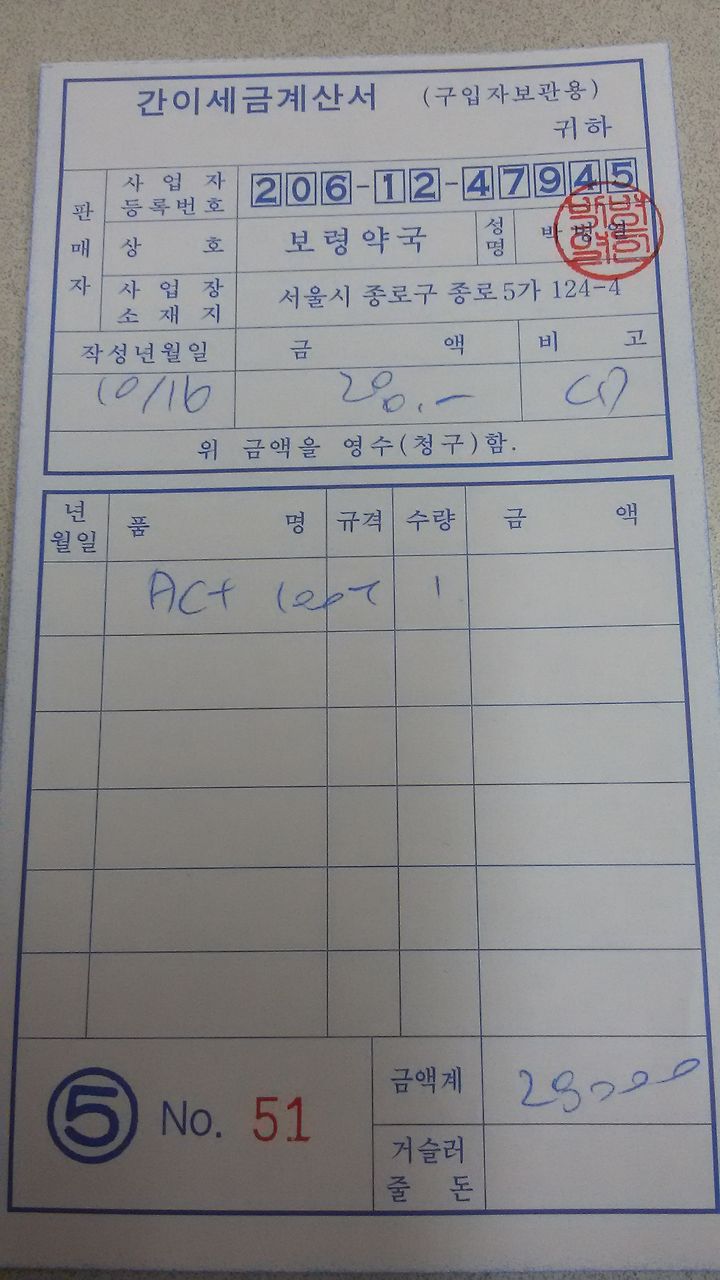 간이세금계산서 (구입자보관용)
귀하
판매자
사업자등록번호 206-12-47945
상호 보령약국 성명 박병열
사업장소재지 서울시 종로구 종로5가 124-4
작성년월일 금액 비고
10/16
위 금액을 영수(청구)함.
년월일 품명 규격 수량 금액
ACT 1
금액계
⑤ No. 51
거슬러줄돈